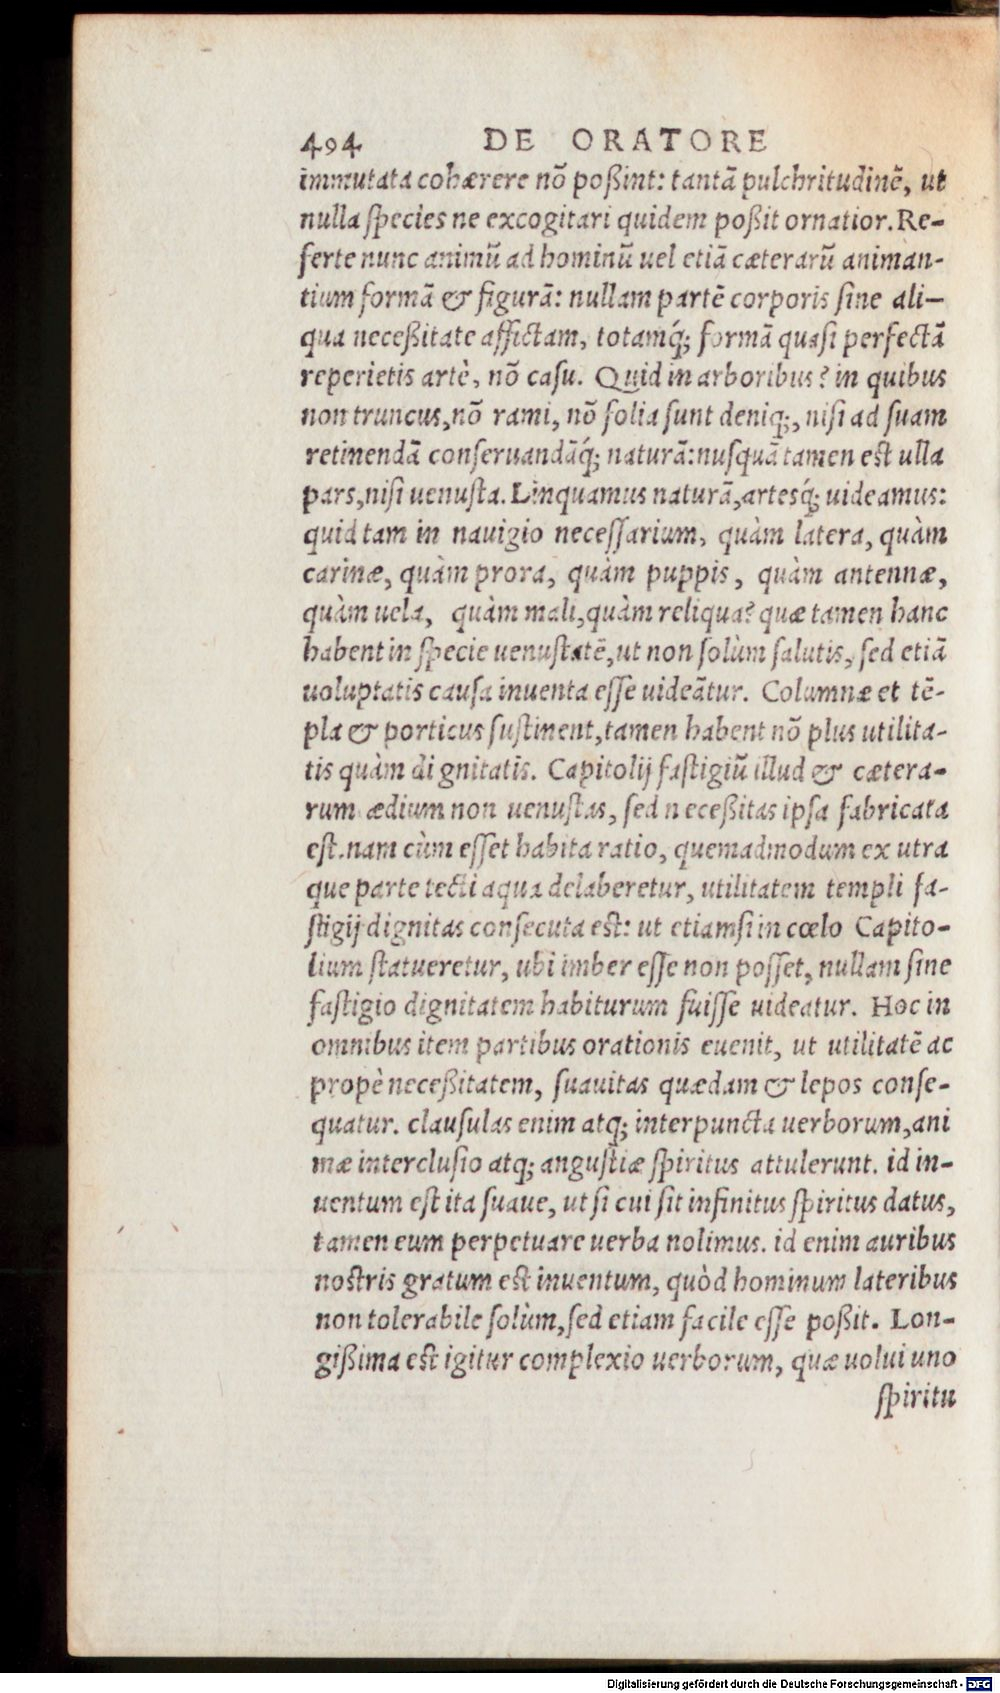 494 DE ORATORE
immutata cohærere nõ poßint: tantã pulchritudinẽ, ut
nulla species ne excogitari quidem poßit ornatior. Re-
ferte nunc animũ ad hominũ uel etiã cæterarũ animan-
tium formã & figurã: nullam partẽ corporis sine ali-
qua neceßitate affictam, totamq́; formã quasi perfectã
reperietis artè, nõ casu. Quid in arboribus? in quibus
non truncus, nõ rami, nõ folia sunt deniq;, nisi ad suam
retinendã conseruandãq́; naturã: nusquã tamen est ulla
pars, nisi uenusta. Linquamus naturã, artesq́; uideamus:
quid tam in nauigio necessarium, quàm latera, quàm
carinæ, quàm prora, quàm puppis, quàm antennæ,
quàm uela, quàm mali, quàm reliqua? quæ tamen hanc
habent in specie uenustatẽ, ut non solùm salutis, sed etiã
uoluptatis causa inuenta esse uideãtur. Columnæ et tẽ-
pla & porticus sustinent, tamen habent nõ plus utilita-
tis quàm dignitatis. Capitolij fastigiũ illud & cætera-
rum ædium non uenustas, sed neceßitas ipsa fabricata
est. nam cùm esset habita ratio, quemadmodum ex utra
que parte tecti aqua delaberetur, utilitatem templi fa-
stigij dignitas consecuta est: ut etiamsi in cœlo Capito-
lium statueretur, ubi imber esse non posset, nullam sine
fastigio dignitatem habiturum fuisse uideatur. Hoc in
omnibus item partibus orationis euenit, ut utilitatẽ ac
propè neceßitatem, suauitas quædam & lepos conse-
quatur. clausulas enim atq; interpuncta uerborum, ani
mæ interclusio atq; angustiæ spiritus attulerunt. id in-
uentum est ita suaue, ut si cui sit infinitus spiritus datus,
tamen eum perpetuare uerba nolimus. id enim auribus
nostris gratum est inuentum, quòd hominum lateribus
non tolerabile solùm, sed etiam facile esse poßit. Lon-
gißima est igitur complexio uerborum, quæ uolui uno
spiritu
Digitalisierung gefördert durch die Deutsche Forschungsgemeinschaft - DFG